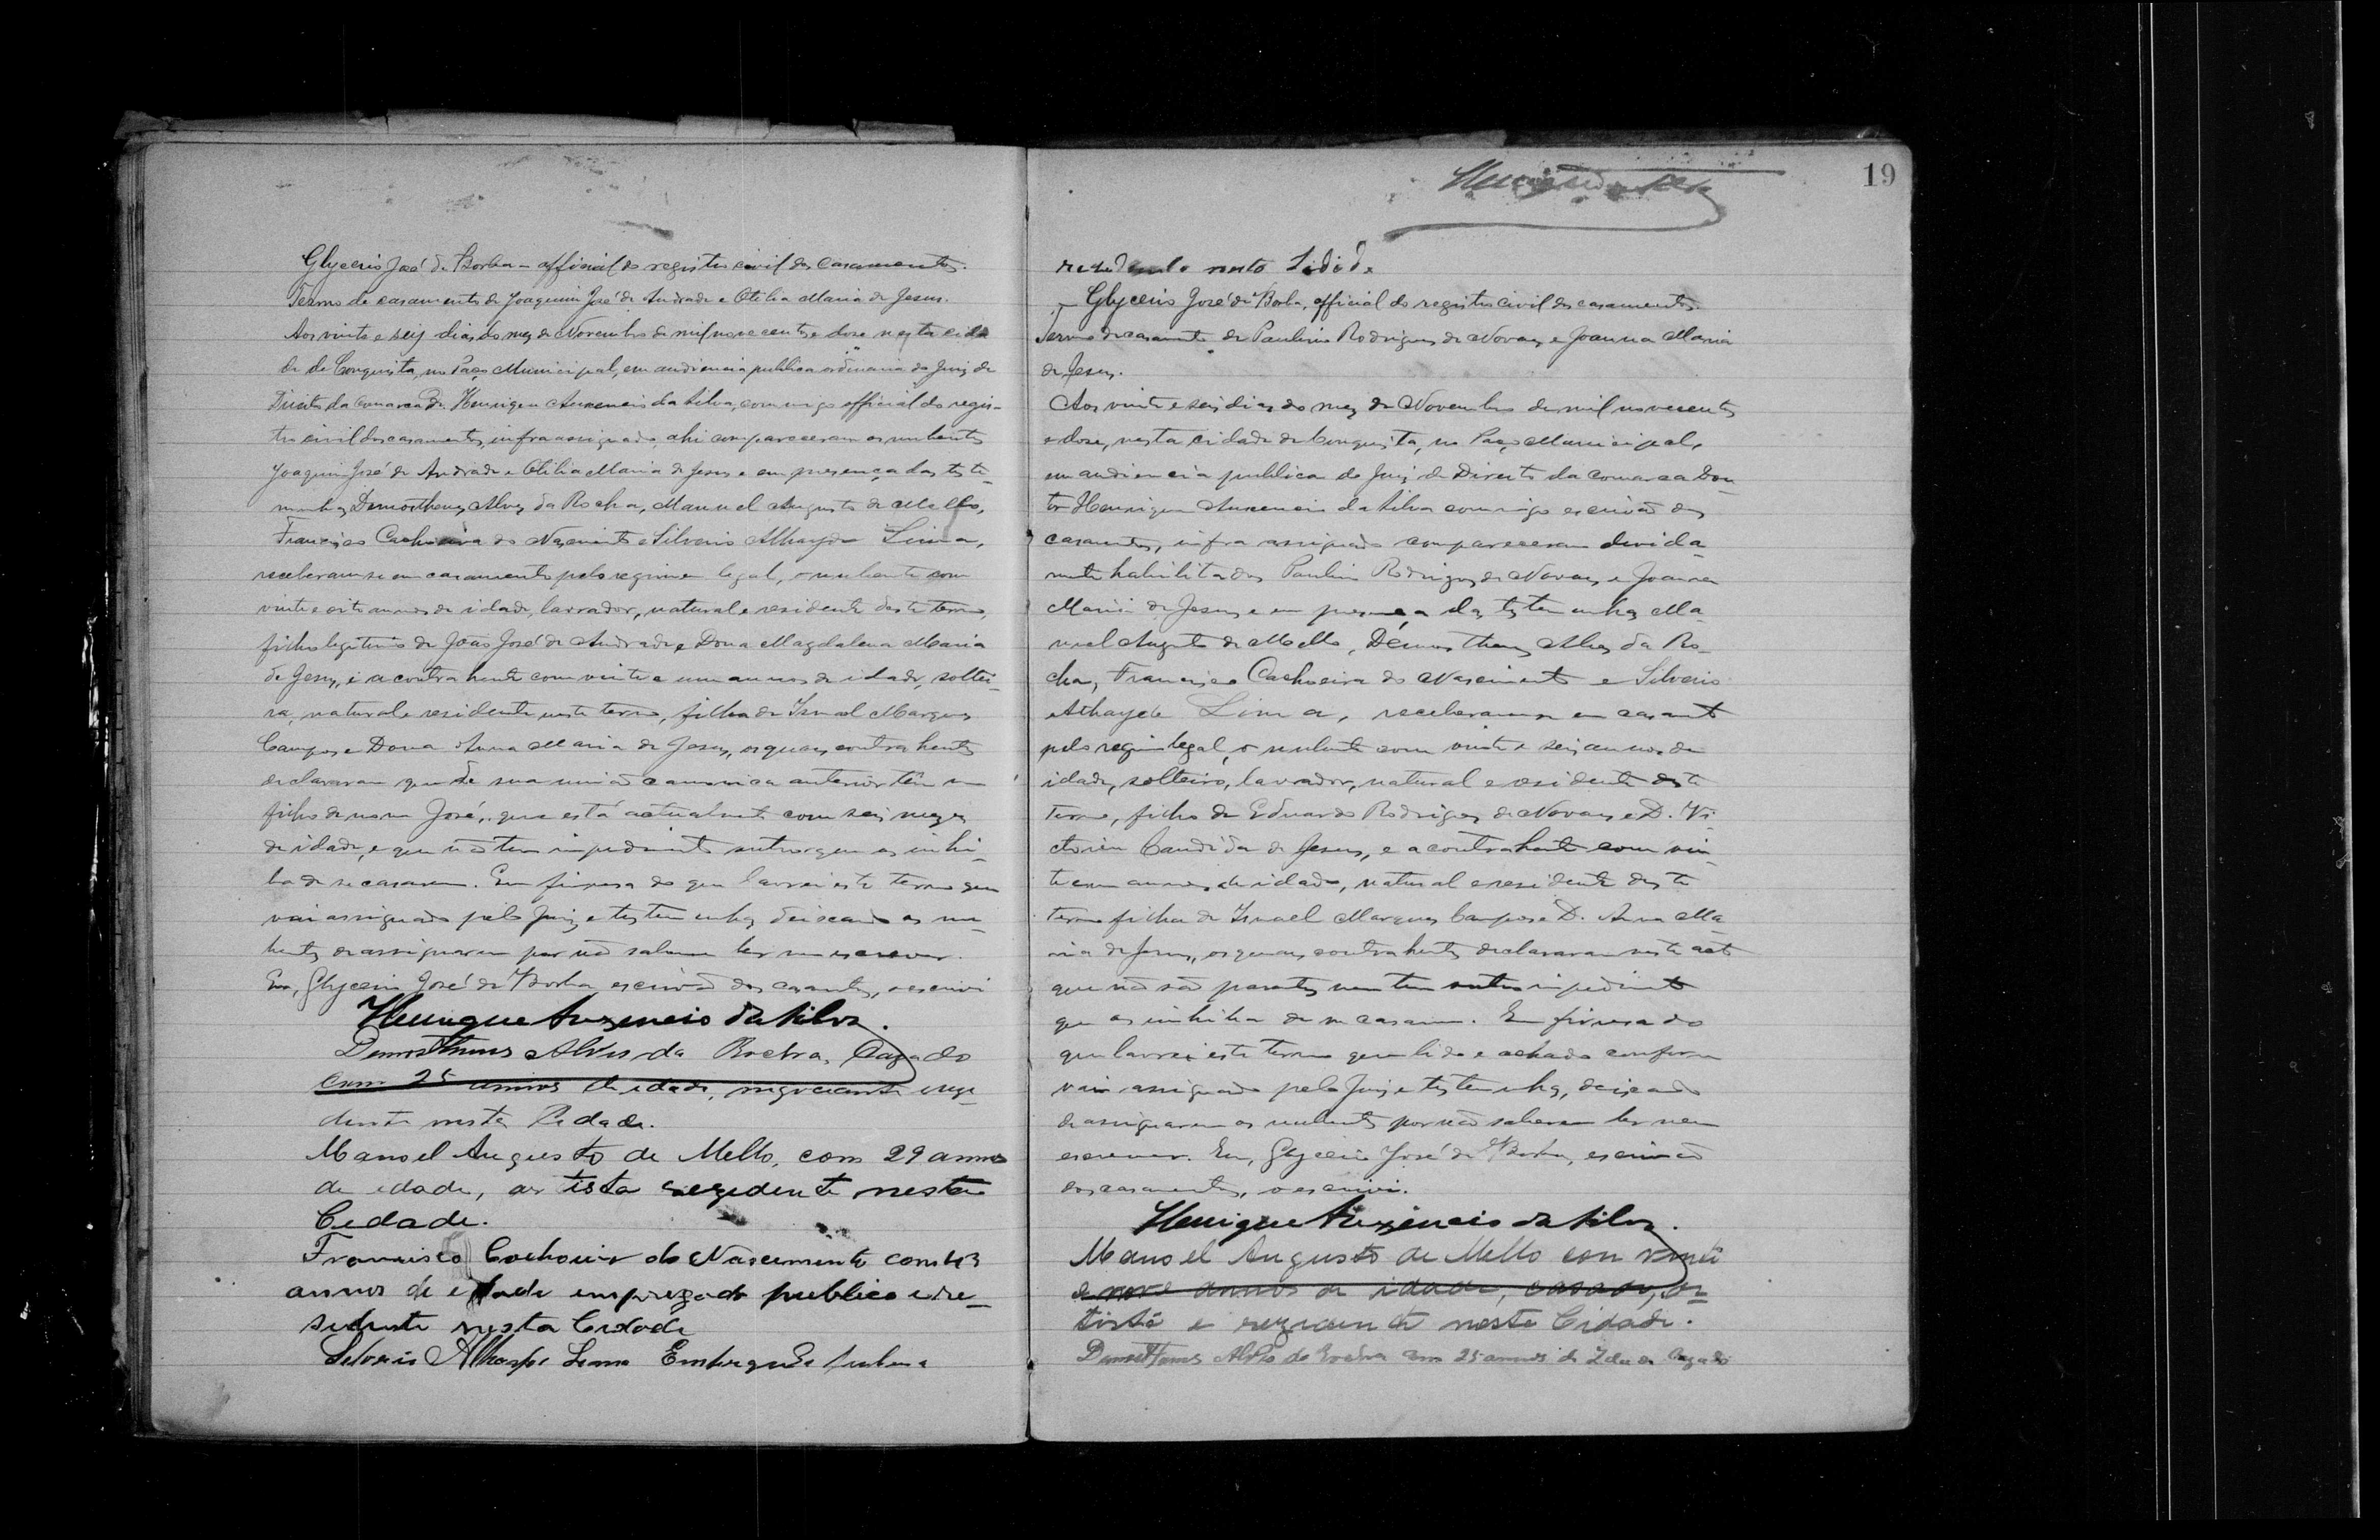 Glycerio José de Borba - official do registro civil dos casamentos.
Termo de casamento de Joaquim José de Andrade e Otilia Maria de Jesus.
Aos vinte e seis dias do mez de Novembro de mil novecentos e dose nesta cida
de de Conquista, no Paço Municipal, em audiencia publica ordinaria do Juiz de
Direito da Comarca Dr. Henrique Auxencio da Silva, commigo official do regis-
tro civil dos casamentos, infra assignado ahi compareceram os nubentes
Joaquim José de Andrade e Otilia Maria de Jesus e em presença das teste-
munhas Demosthenes Alves da Rocha, Manuel Augusto de Mello,
Francisco Cachoeira do Nascimento e Silverio Athayde Lima,
receberam-se em casamento pelo regimen legal, o nubente com
vinte e oito annos de idade, lavrador, natural e residente deste termo,
filho legitimo de João José de Andrade e Dona Magdalena Maria
de Jesus, e a contrahente com vinte e um annos de idade, soltei-
ra, natural e residente neste termo, filha de Ismael Marques
Campos e Dona Anna Maria de Jesus, os quaes contrahentes
declararam que de sua união canonica anterior têm um
filho de nome José, que está actualmente com seis mezes
de idade, e que não tem impedimento outro que os inhi-
ba de se casarem. Em firmesa do que lavrei este termo que
vai assignado pelo Juiz e testemunhas, deixando os nu-
bentes de assignarem por não saberem ler nem escrever.
Eu, Glycerio José de Borba, escrivão dos casamentos, o escrivi
Henrique Auxencio da Silva.
Demosthenes Alves da Rocha, Cazado
com 25 annos de idade, negociante e rezi-
dente nesta Cidade.
Manoel Augusto de Mello, com 29 annos
de edade, artista e rezidente nesta
Cidade.
Francisco Cachoeira do Nascimento com
annos de edade empregado publico e re-
sidente nesta Cidade
Silverio Athayde Lima
19
rezidente nesta Cidade
Glycerio José de Borba, official do registro civil dos casamentos.
Termo de casamento de Paulino Rodrigues de Novaes e Joanna Maria
de Jesus.
Aos vinte e seis dias do mez de Novembro de mil novecentos
e dose, nesta cidade de Conquista, no Paço Municipal,
em audiencia publica do Juiz de Direito da comarca Dou-
tor Henrique Auxencio da Silva commigo escrivão dos
casamentos, infra assignado compareceram devida-
mente habilitados Paulino Rodrigues de Novaes e Joanna
Maria de Jesus e em presença das testemunhas Ma-
nuel Augusto de Mello, Demosthenes Alves da Ro-
cha, Francisco Cachoeira do Nascimento e Silverio
Athayde Lima, receberam-se em casamento
pelo regimen legal, o nubente com vinte e seis annos de
idade, solteiro, lavrador, natural e residente deste
termo, filho de Eduardo Rodrigues de Novaes e D. Vi-
ctoria Candida de Jesus, e a contrahente com vin-
te e um annos de idade, natural e residente deste
termo filha de Ismael Marques Campos e D. Anna Ma-
ria de Jesus, os quaes contrahentes declararam neste acto
que não são parentes nem tem outro impedimento
que os inhiba de se casarem. Em firmesa do
que lavrei este termo que lido e achado conforme
vai assignado pelo Juiz e testemunhas, deixando
de assignarem os nubentes por não saberem ler nem
escrever. Eu, Glycerio José de Borba, escrivão
dos casamentos, o escrivi.
Henrique Auxencio da Silva.
Manoel Augusto de Mello com vinte
e nove annos de idade, casado, ar-
tista e rezidente nesta Cidade.
Demosthenes Alves da Rocha com 25 annos de Idade Cazado